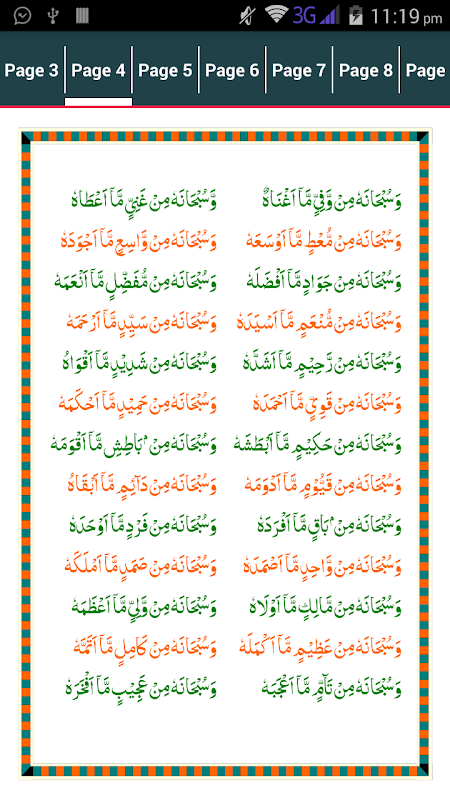 3G 11:19 pm
Page 3 Page 4 Page 5 Page 6 Page 7 Page 8 Page
وَسُبْحَانَهٗ مِنْ وَّفِيٍّ مَّآ اَغْنَاهُ وَّسُبْحَانَهٗ مِنْ غَنِيٍّ مَّآ اَعْطَاهُ
وَسُبْحَانَهٗ مِنْ مُّعْطٍ مَّآ اَوْسَعَهٗ وَسُبْحَانَهٗ مِنْ وَّاسِعٍ مَّآ اَجْوَدَهٗ
وَسُبْحَانَهٗ مِنْ جَوَادٍ مَّآ اَفْضَلَهٗ وَسُبْحَانَهٗ مِنْ مُّفَضِّلٍ مَّآ اَنْعَمَهٗ
وَسُبْحَانَهٗ مِنْ مُّنْعَمٍ مَّآ اَسْيَدَهٗ وَسُبْحَانَهٗ مِنْ سَيِّدٍ مَّآ اَرْحَمَهٗ
وَسُبْحَانَهٗ مِنْ رَّحِيْمٍ مَّآ اَشَدَّهٗ وَسُبْحَانَهٗ مِنْ شَدِيْدٍ مَّآ اَقْوَاهُ
وَسُبْحَانَهٗ مِنْ قَوِيٍّ مَّآ اَحْمَدَهٗ وَسُبْحَانَهٗ مِنْ حَمِيْدٍ مَّآ اَحْكَمَهٗ
وَسُبْحَانَهٗ مِنْ حَكِيْمٍ مَّآ اَبْطَشَهٗ وَسُبْحَانَهٗ مِنْۢ بَاطِشٍ مَّآ اَقْوَمَهٗ
وَسُبْحَانَهٗ مِنْ قَيُّوْمٍ مَّآ اَدْوَمَهٗ وَسُبْحَانَهٗ مِنْ دَآئِمٍ مَّآ اَبْقَاهُ
وَسُبْحَانَهٗ مِنْۢ بَاقٍ مَّآ اَفْرَدَهٗ وَسُبْحَانَهٗ مِنْ فَرْدٍ مَّآ اَوْحَدَهٗ
وَسُبْحَانَهٗ مِنْ وَّاحِدٍ مَّآ اَصْمَدَهٗ وَسُبْحَانَهٗ مِنْ صَمَدٍ مَّآ اَمْلَكَهٗ
وَسُبْحَانَهٗ مِنْ مَّالِكٍ مَّآ اَوْلَاهُ وَسُبْحَانَهٗ مِنْ وَّلِيٍّ مَّآ اَعْظَمَهٗ
وَسُبْحَانَهٗ مِنْ عَظِيْمٍ مَّآ اَكْمَلَهٗ وَسُبْحَانَهٗ مِنْ كَامِلٍ مَّآ اَتَمَّهٗ
وَسُبْحَانَهٗ مِنْ تَآمٍّ مَّآ اَعْجَبَهٗ وَسُبْحَانَهٗ مِنْ عَجِيْبٍ مَّآ اَفْخَرَهٗ